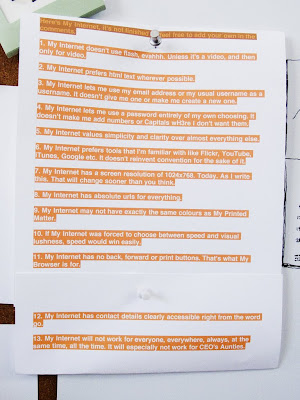 Here's My Internet, it's not finished feel free to add your own in the
comments.
1. My Internet doesn't use flash, evahhh. Unless it's a video, and then
only for video.
2. My Internet prefers html text wherever possible.
3. My Internet lets me use my email address or my usual username as a
username. It doesn't give me one or make me create a new one.
4. My Internet lets me use a password entirely of my own choosing. It
doesn't make add numbers or Capitals wHGre I don't want them.
5. My Internet values simplicity and clarity over almost everything else.
6. My Internet prefers tools that I'm familiar with like Flickr, YouTube,
iTunes, Google etc. It doesn't reinvent convention for the sake of it.
7. My Internet has a screen resolution of 1024x768. Today. As I write
this. That will change sooner than you think.
8. My Internet has absolute urls for everything.
9. My Internet may not have exactly the same colours as My Printed
Matter.
10. If My Internet was forced to choose between speed and visual
lushness, speed would win easily.
11. My Internet has no back, forward or print buttons. That's what My
Browser is for.
12. My Internet has contact details clearly accessible right from the word
go.
13. My Internet will not work for everyone, everywhere, always, at the
same time, all the time. It will especially not work for CEO's Aunties.